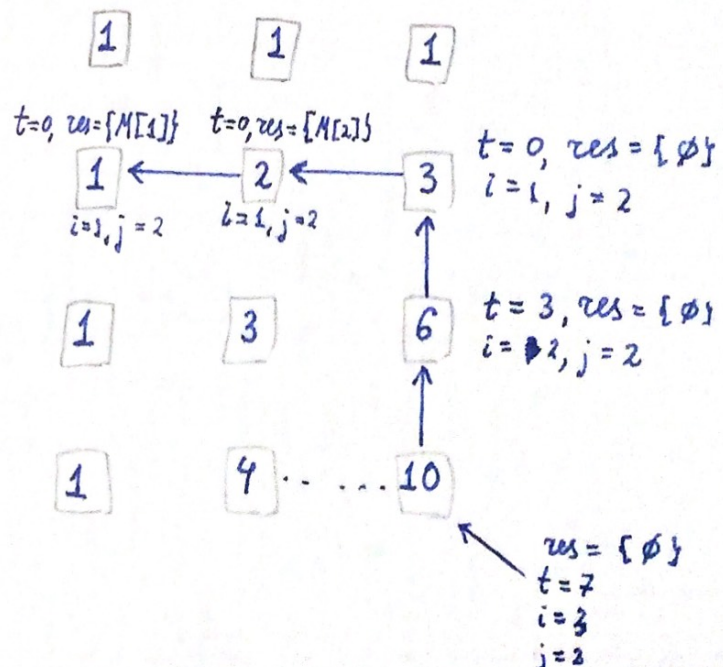 1 1 1
t=0, res={M[1]} t=0, res={M[2]}
1 2 3
i=1, j=2 i=1, j=2
t=0, res={ø}
i=1, j=2
1 3 6
t=3, res={ø}
i=2, j=2
1 4 .. ...10
res={ø}
t=7
i=3
j=2